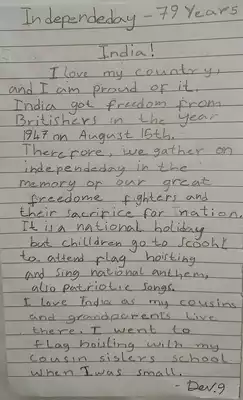 Independeday - 79 Years
India!
I love my country,
and I am proud of it.
India got freedom from
Britishers in the year
1947 on August 15th.
Therefore, we gather on
independeday in the
memory of our great
freedome fighters and
their sacrifice for nation.
It is a national holiday
but chilldren go to scool
to attend flag hoisting
and sing national anthem,
also patriotic songs.
I love India as my cousins
and grandparents live
there. I went to
flag hoisting with my
cousin sisters school
when I was small.
- Dev.9